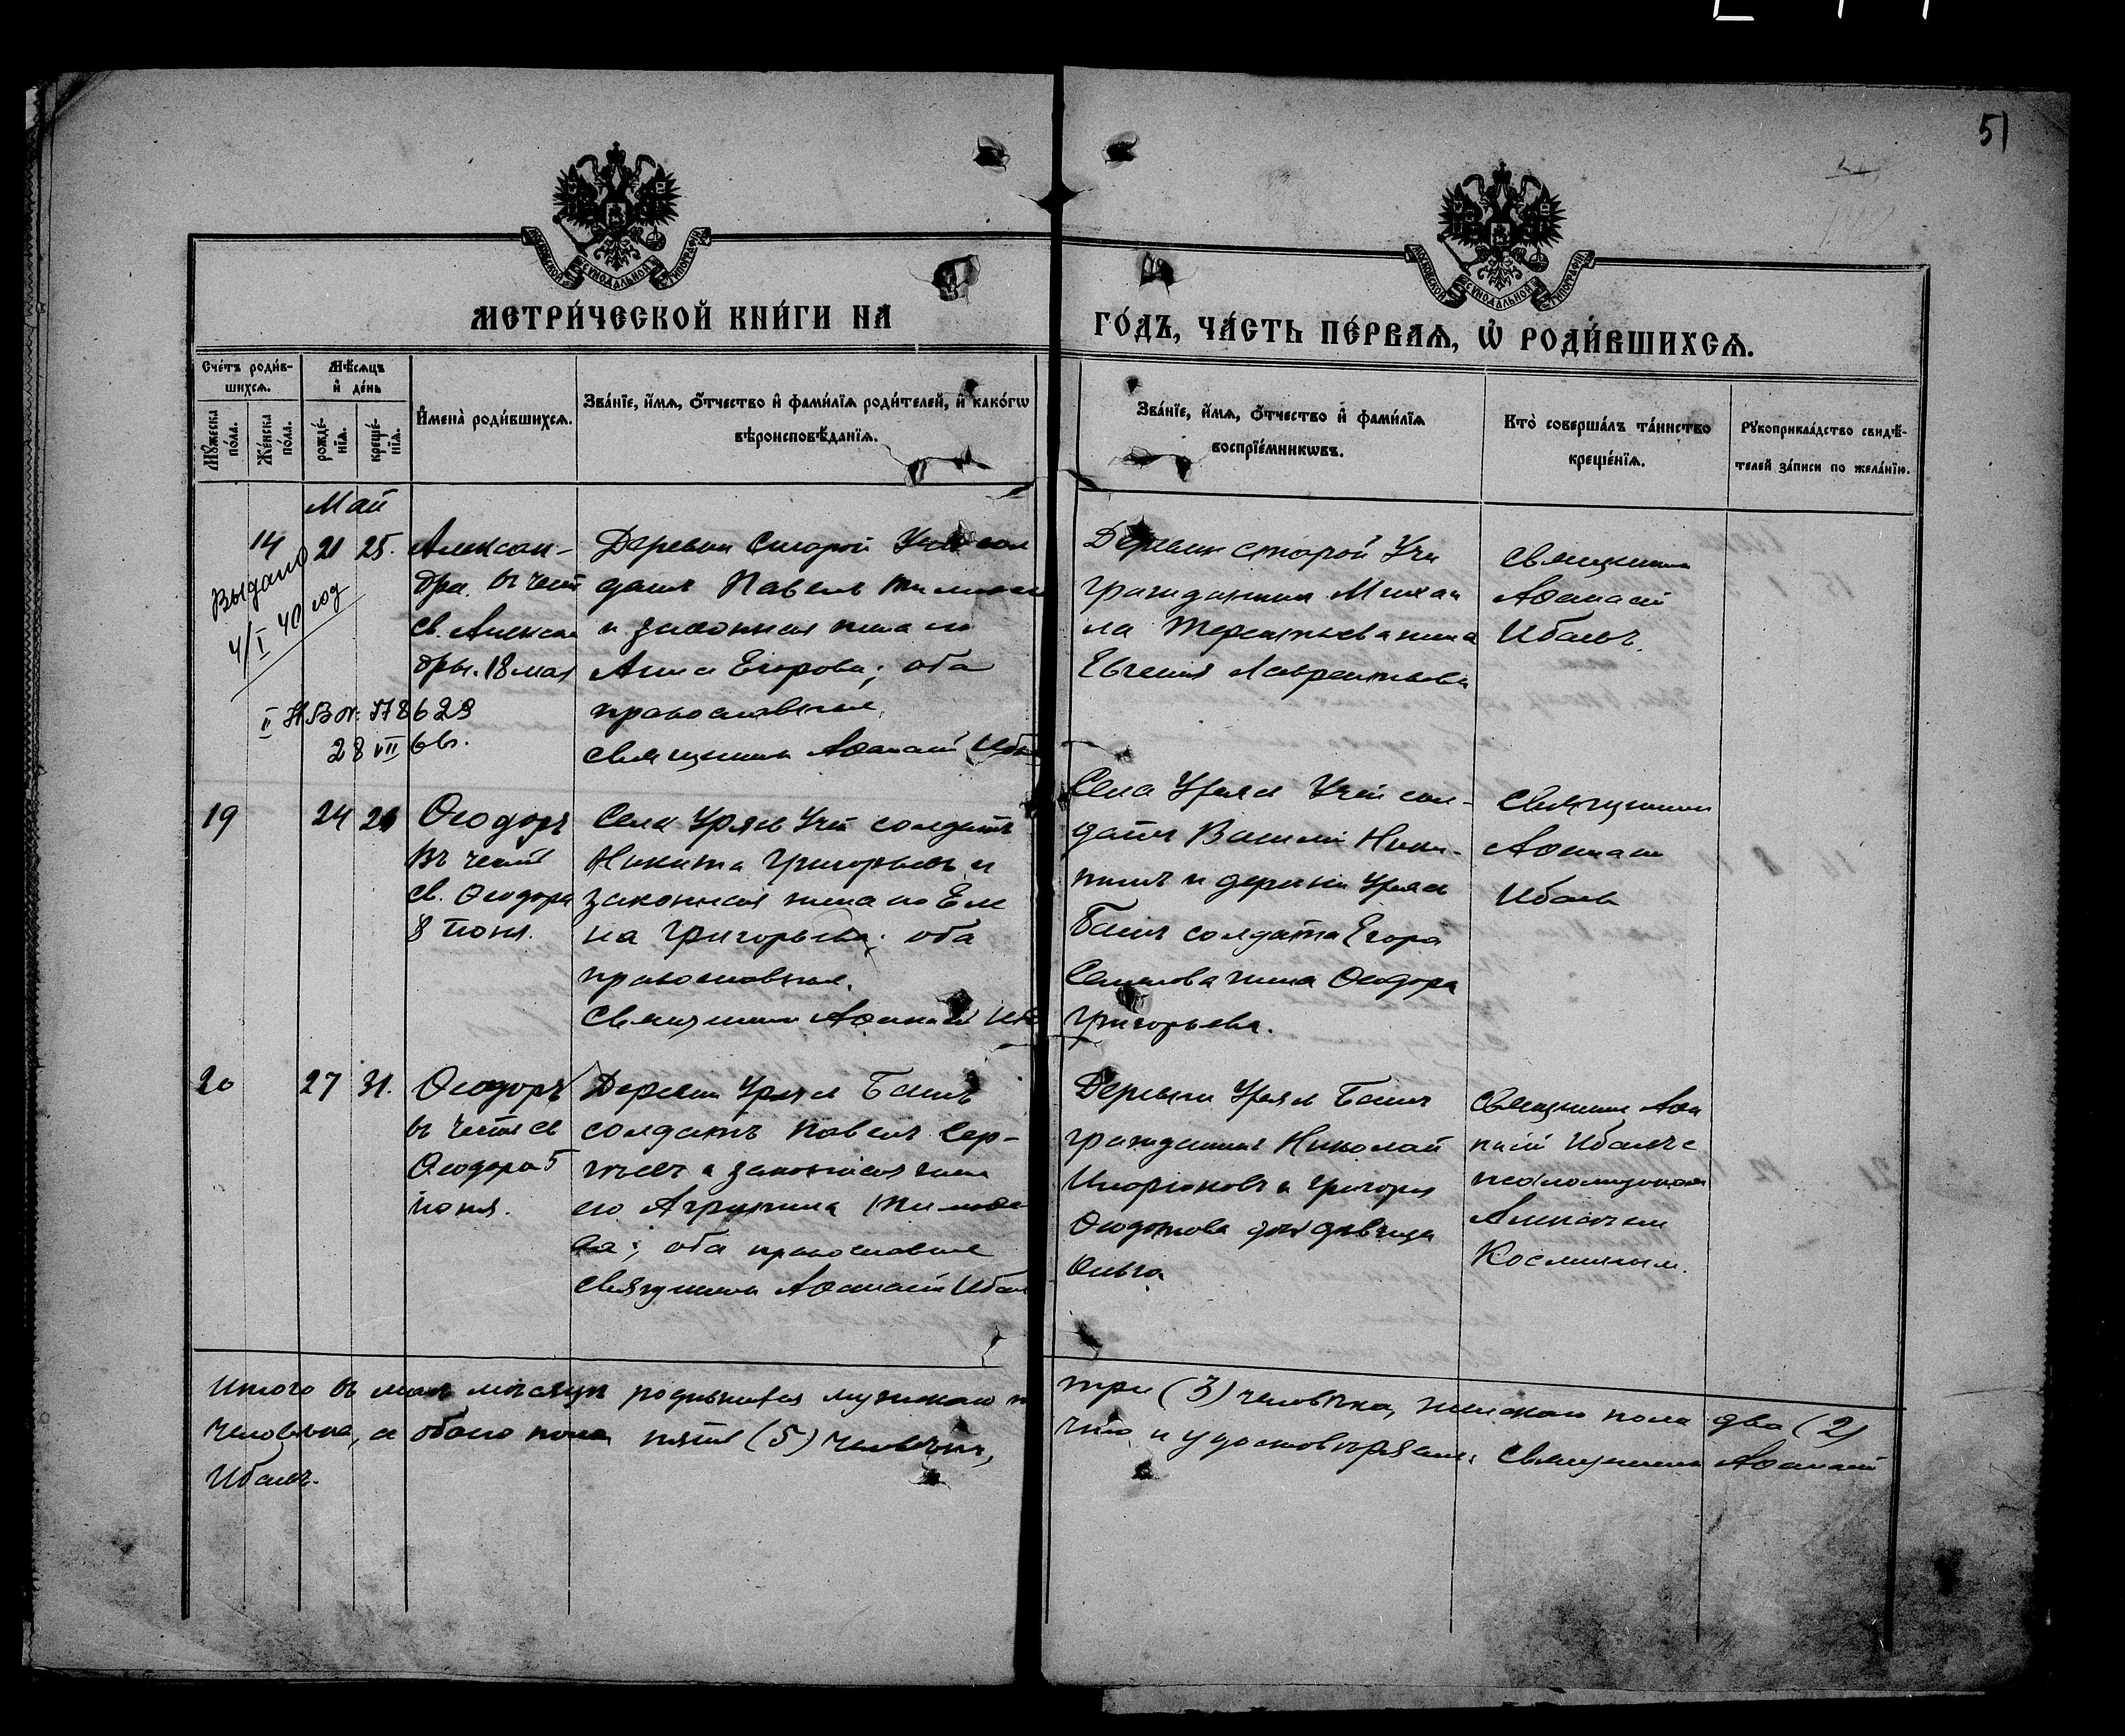 51
МОСКОВСКОЙ СѴНОДАЛЬНОЙ ТИПОГРАФІИ
МОСКОВСКОЙ СѴНОДАЛЬНОЙ ТИПОГРАФІИ
МЕТРИ́ЧЕСКОЙ КНИ́ГИ НА
ГО́ДЪ, ЧА́СТЬ ПЕ́РВАѦ, Ѡ҆ РОДИ́ВШИХСѦ.
Сче́тъ роди́в-
шихсѧ.
Мꙋ́жеска по́ла.
Же́нска по́ла.
Мѣ́сѧцъ
и҆ де́нь
рожде́-
нїѧ.
креще́-
нїѧ.
И҆мена̀ роди́вшихсѧ.
Зва́нїе, и҆́мѧ, ѻ҆́тчество и҆ фами́лїѧ роди́телей, и҆ како́гѡ
вѣроисповѣ́данїѧ.
Зва́нїе, и҆́мѧ, ѻ҆́тчество и҆ фами́лїѧ
воспрїе́мникѡвъ.
Кто̀ соверша́лъ та́инство
креще́нїѧ.
Рꙋкоприкла́дство свидѣ́-
телей за́писи по жела́нїю.
Май
14 21 25.
Выдано
4/I 40 год
Алексан-
дра. въ честь
св. Алексан
дры. 18 мая
628
28 VII
Деревни Старой Учи
датъ Павелъ
и законная жена его
Анна Егорова; оба
православные
священникъ Аѳанасій
Деревни старой Учи
гражданина Михаи
ла Терентьева жена
Евгенія Лаврентьева
священникъ
Аѳанасій
Ибаевъ.
19 24 26
Ѳеодоръ
въ честь
св. Ѳеодора
8 іюня.
Села Урясь Учи солдатъ
Никита Григорьевъ и
законная жена его Еле
на Григорьева; оба
православные.
священникъ Аѳанасій
Села Урясь Учи сол-
датъ Василій Ники-
тинъ и деревни Урясь
Башъ солдата Егора
Семенова жена Ѳеодора
Григорьева.
священникъ
Аѳанасій
Ибаевъ
20 27 31.
Ѳеодоръ
въ честь св
Ѳеодора 5
іюня.
Деревни Урясь Башъ
солдатъ Павелъ Сер-
гѣевъ и законная жена
его Агрипина Тимоѳе
ва; оба православные
священникъ Аѳанасій Ибаев
Деревни Урясь Башъ
гражданинъ Николай
Иларіоновъ и Григорія
Ѳеодотова дочь дѣвица
Ольга
священникъ Аѳа
насій Ибаевъ с
псаломщикомъ
Алексѣем
Косминым.
Итого въ маѣ мѣсяцѣ родившихся мужскаго
три (3) человѣка, женскаго пола два (2)
человѣка, а обоего пола пять (5) человѣкъ,
что и удостовѣряем: священникъ Аѳанасій
Ибаевъ.